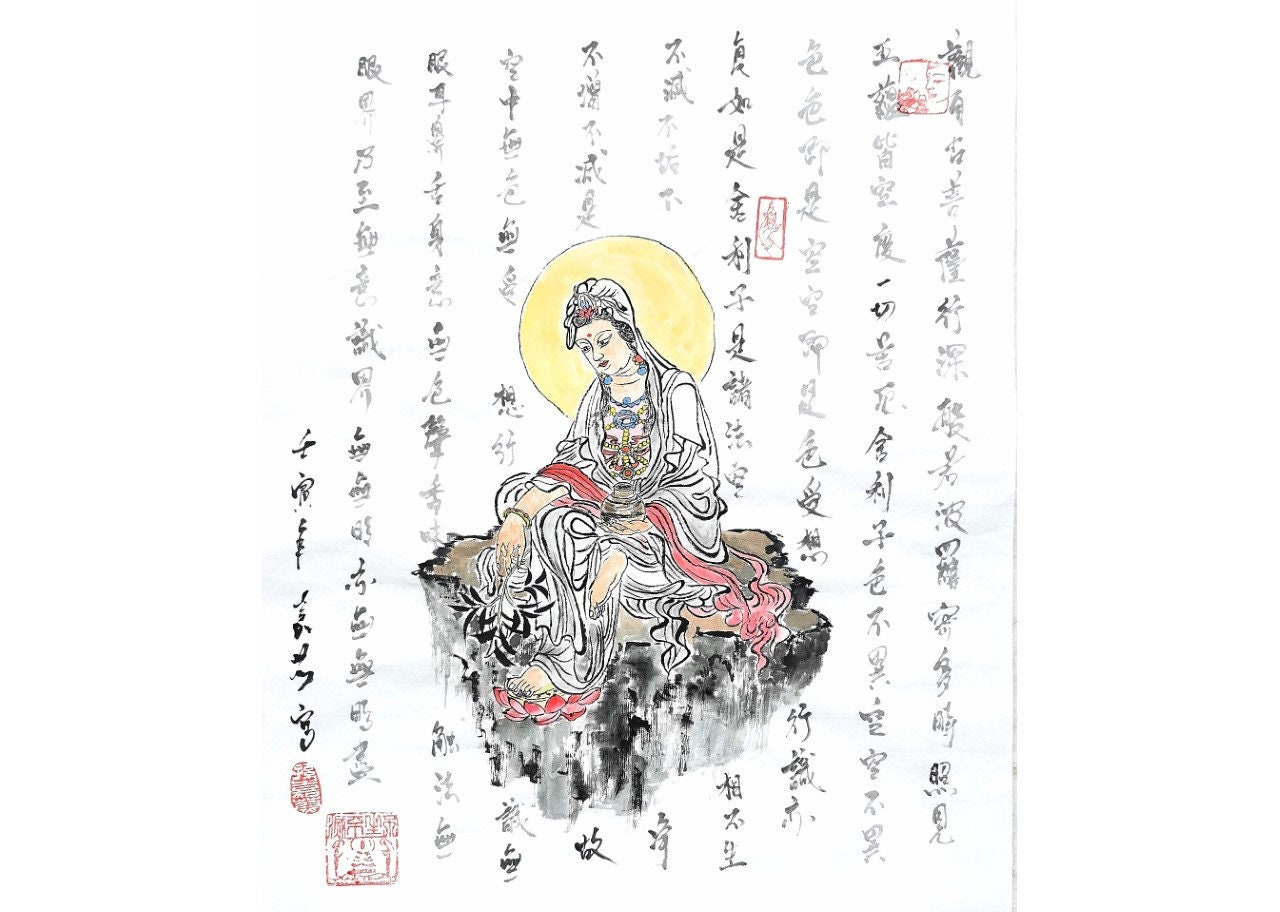 觀自在菩薩行深般若波羅密多時照見
五蘊皆空度一切苦厄舍利子色不異空空不異
色色即是空空即是色受想行識亦
復如是舍利子是諸法空相不生
不滅不垢不淨
不增不減是故
空中無色無受想行識無
眼耳鼻舌身意無色聲香味觸法無
眼界乃至無意識界無無明亦無無明盡
壬寅年嘉寫